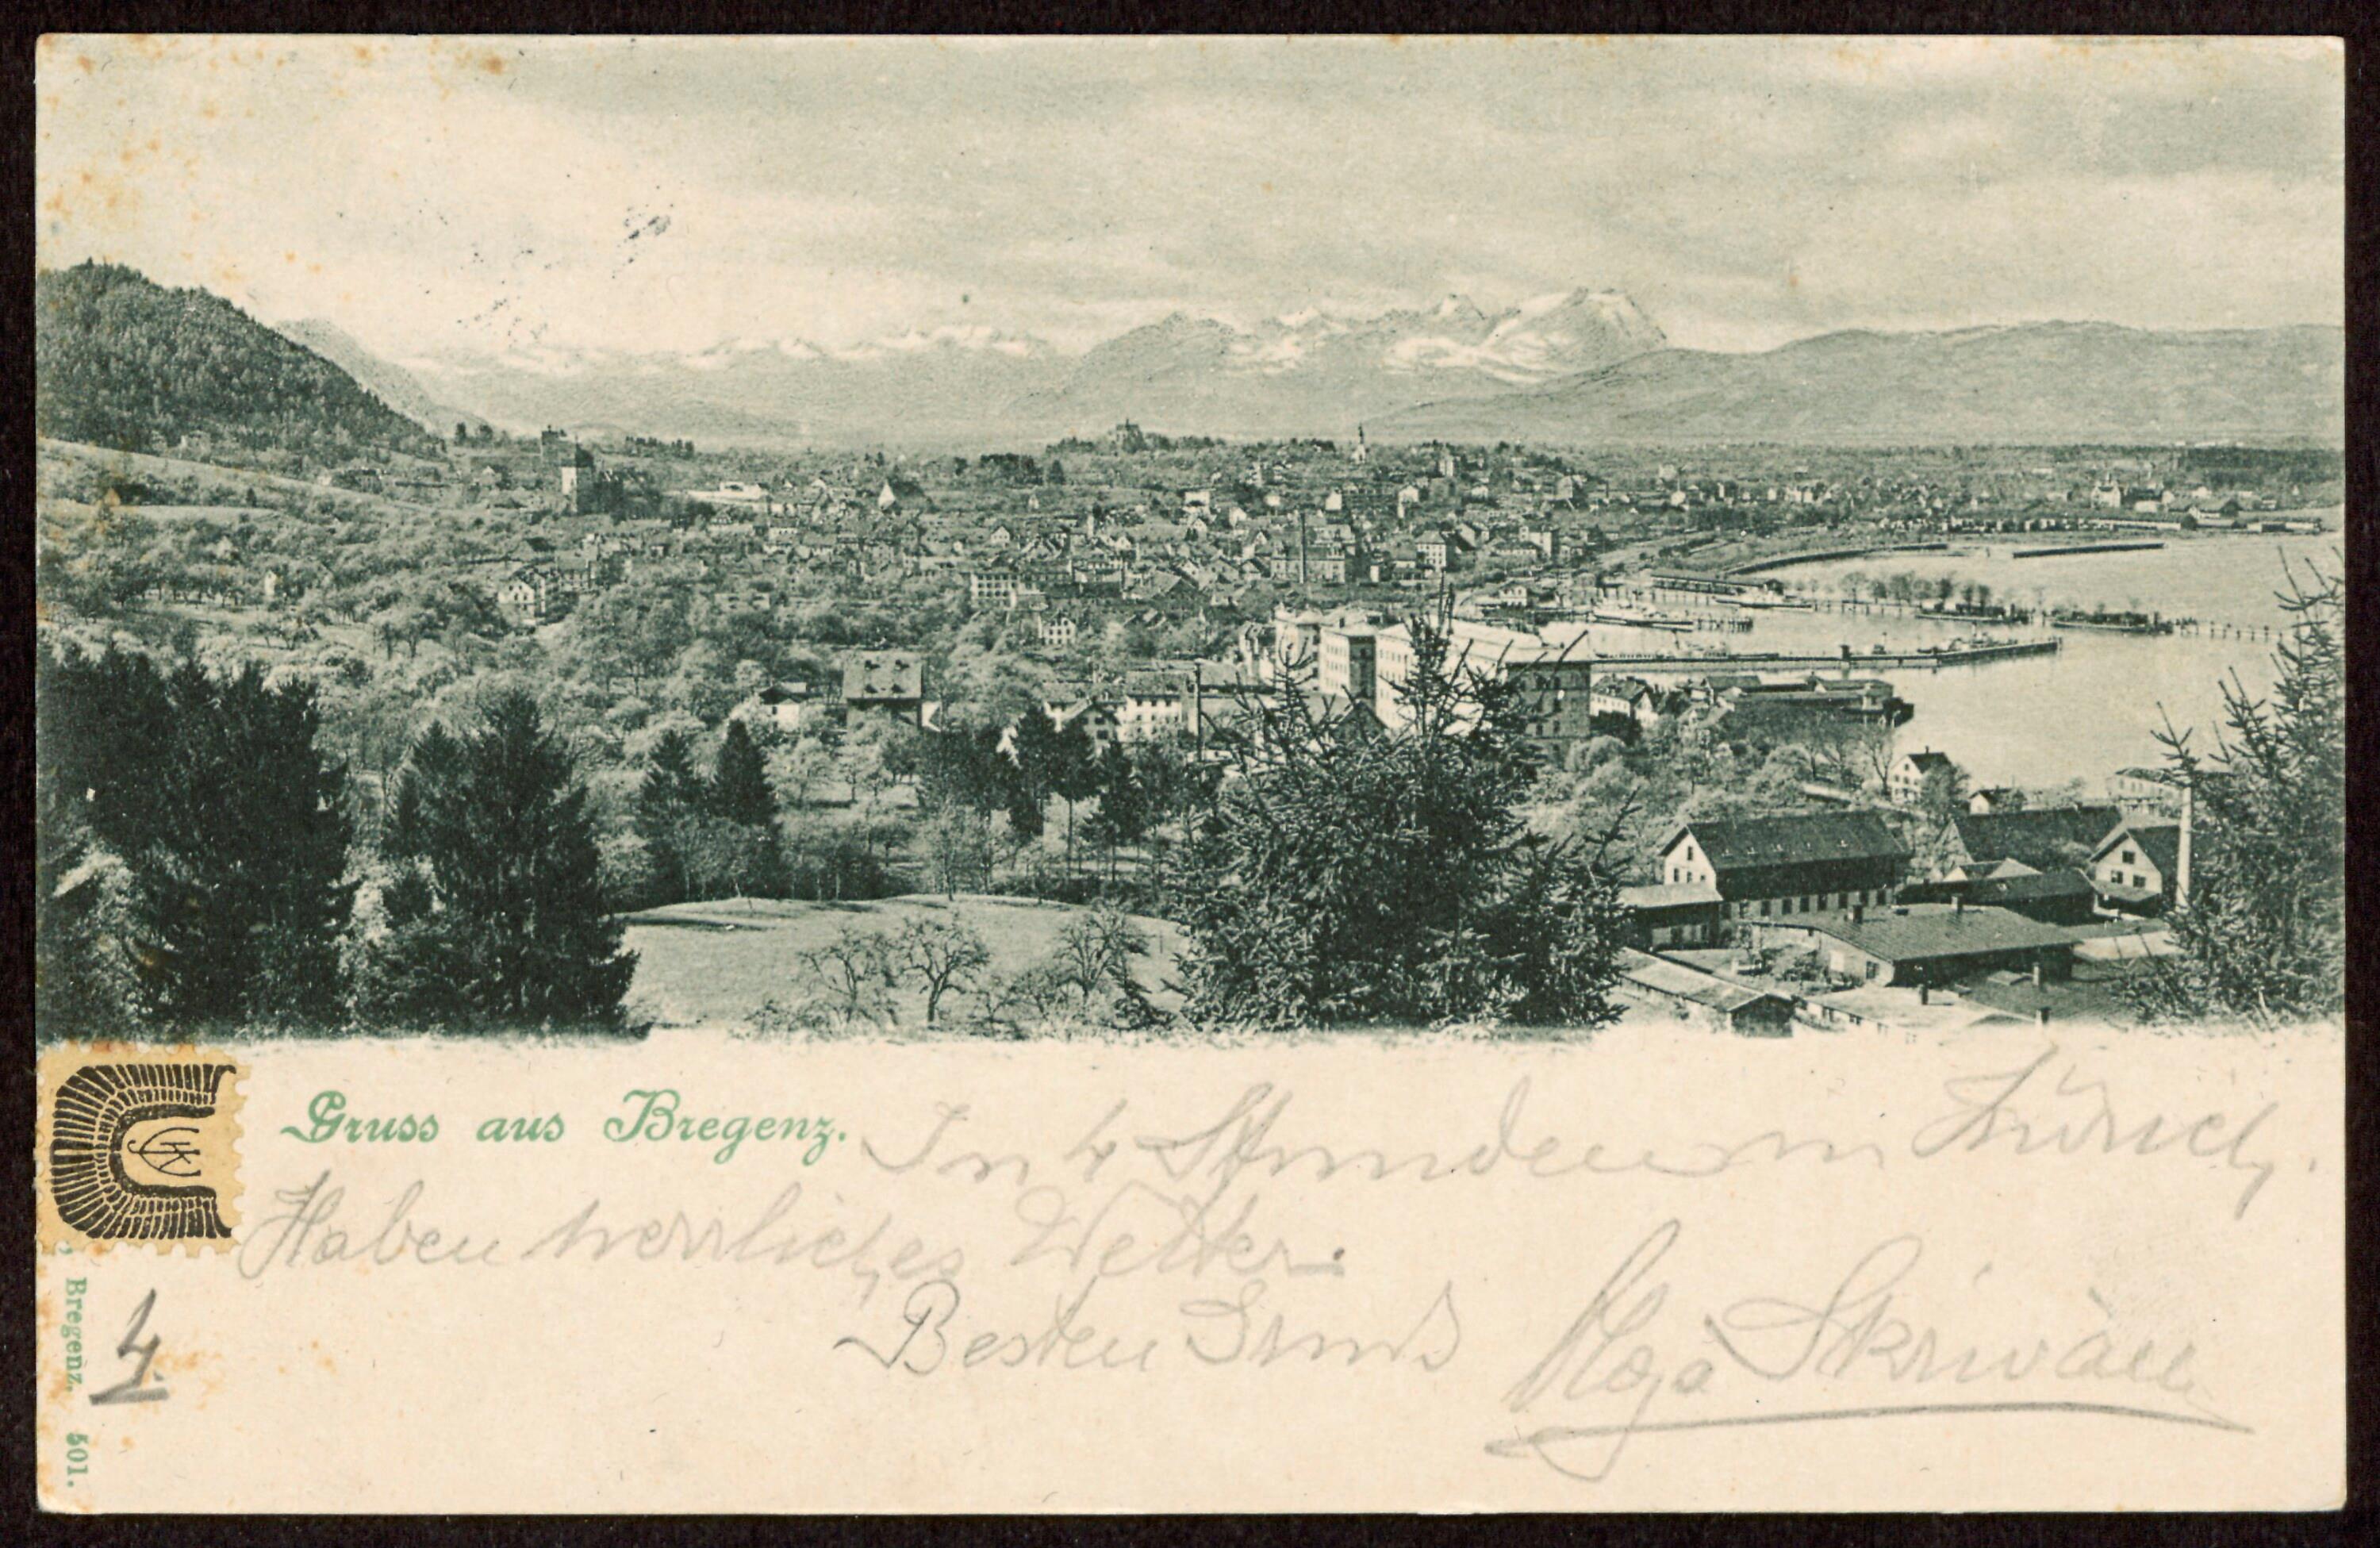 Gruss aus Bregenz.
In 4 Stunden in Zürich.
Haben herrliches Wetter.
Besten Gruß
Skriwan
4.
Bregenz. 501.